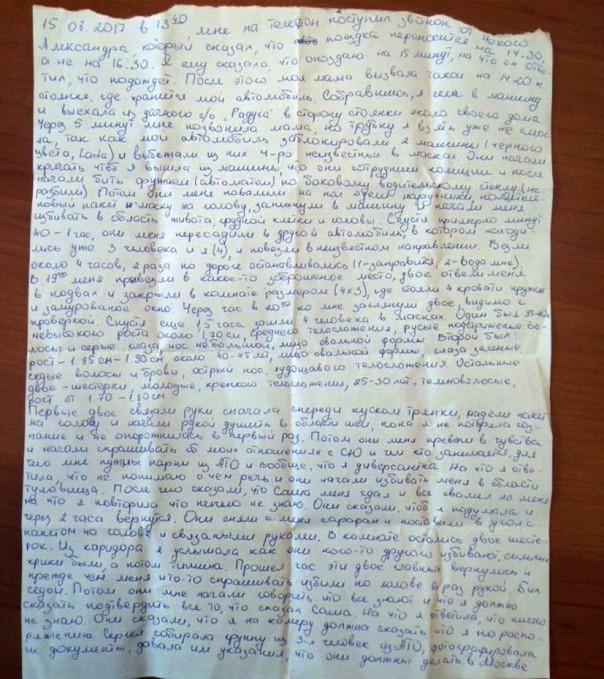 15.03.2017 в 13 40 мне на телефон поступил звонок от некого
Александра, который сказал, что поездка переносится на 14.30,
а не на 16.30. Я ему сказала, что опоздаю на 15 минут, на что он отве-
тил, что подождет. После этого моя мама вызвала такси на 14 20 к
стоянке, где хранится мой автомобиль. Собравшись, я села в машину
и выехала из дачного "Радуга" в сторону стоянки около своего дома
Через 5 минут мне позвонила мама, но трубку я взять уже не смог-
ла, так как мой автомобиль заблокировали 2 машины (черного
цвета, Lada) и выбежали из них 4-ро неизвестных в масках. Они начали
кричать чтоб я вышла из машины, что они сотрудники полиции и после
начали бить оружием (автоматом) по боковому водительскому стеклу (не
разбили). Потом они меня повалили на пол одели наручники,
пакет и маску на голову, запихнули в машину и начали меня
избивать в область живота, грудной клетки и головы. Спустя примерно минут
40 - 1 час, они меня пересадили в другой автомобиль, в котором находи-
лись уже 3 человека и я (4), и повезли в неизвестном направлении. Везли
около 4 часов, 2 раза по дороге останавливались (1-заправится, 2-вода мне).
В 19 меня привезли в какое-то заброшенное место, двое отвели меня
в подвал и закрыли в комнате размером (4х3), где стояли 4 кровати
и замурованое окно. Через час в 20 ко мне заглянули двое, видимо с
проверкой. Спустя еще 1,5 часа зашли 4 человека в масках. Один был 35-40л
невысокого роста около 170см, среднего телосложения, русые подстриженые во-
лосы, и серые глаза, нос небольшой, лицо овальной формы. Второй был:
рост - 1.85см - 1.90см. около 40-45 лет, лицо овальной формы, глаза зеленые
седые волосы и брови, острый нос, худощавого телосложения. Остальные
двое - шестерки, молодые, крепкого телосложения, 25-30 лет, темноволосые,
рост от 1.70 - 1.80см.
Первые двое связали руки сначала спереди куском тряпки, надели пакет
на голову и начали рукой душить в области шеи, пока я не потеряла соз-
нание и не опорожнилась в первый раз. Потом они меня привели в чувства
и начали спрашивать об моих отношениях с СЮ и чем кто занимался, для
чего мне нужны парни из АТО и вообще, что я диверсантка. На что я отве-
тила, что не понимаю о чем речь и они начали избивать меня в области
туловища. После чего сказали, что Саша меня сдал и все свалил на меня
на что я повторила что ничего не знаю. Они сказали, чтоб я подумала и
через 2 часа вернутся. Они сняли с меня сарафан и поставили в угол с
пакетом на голове и связаными руками. В комнате остались двое шесте-
рок. Из каридора я услышала как они кого-то другого избивают, сильные
крики были, а потом тишина. Прошел час эти двое главных вернулись и
прежде чем меня что-то спрашивать избили по голове раз рукой. Бил
седой. Потом они мне начали говорить что все знают и что я должна
сказать подтвердить все то, что сказал Саша. На что я ответила, что ничего
не знаю. Они сказали, что я на камеру должна сказать что я по распо-
ряжению Сергея собирала группу из 3-х человек из АТО, фотографировала
их документы, давала им указания, что они должны делать в Москве